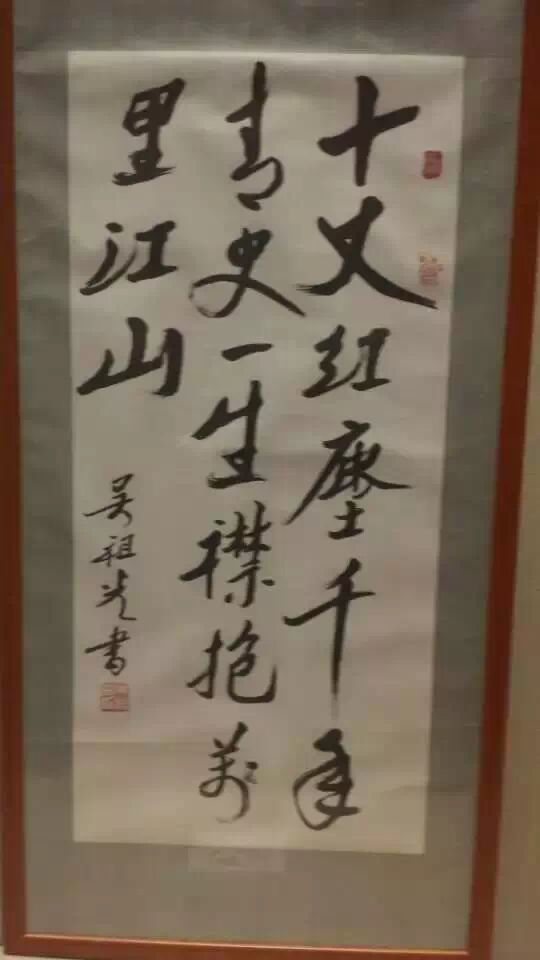 十丈红塵千年
青史一生襟抱萬
里江山
吴祖光書